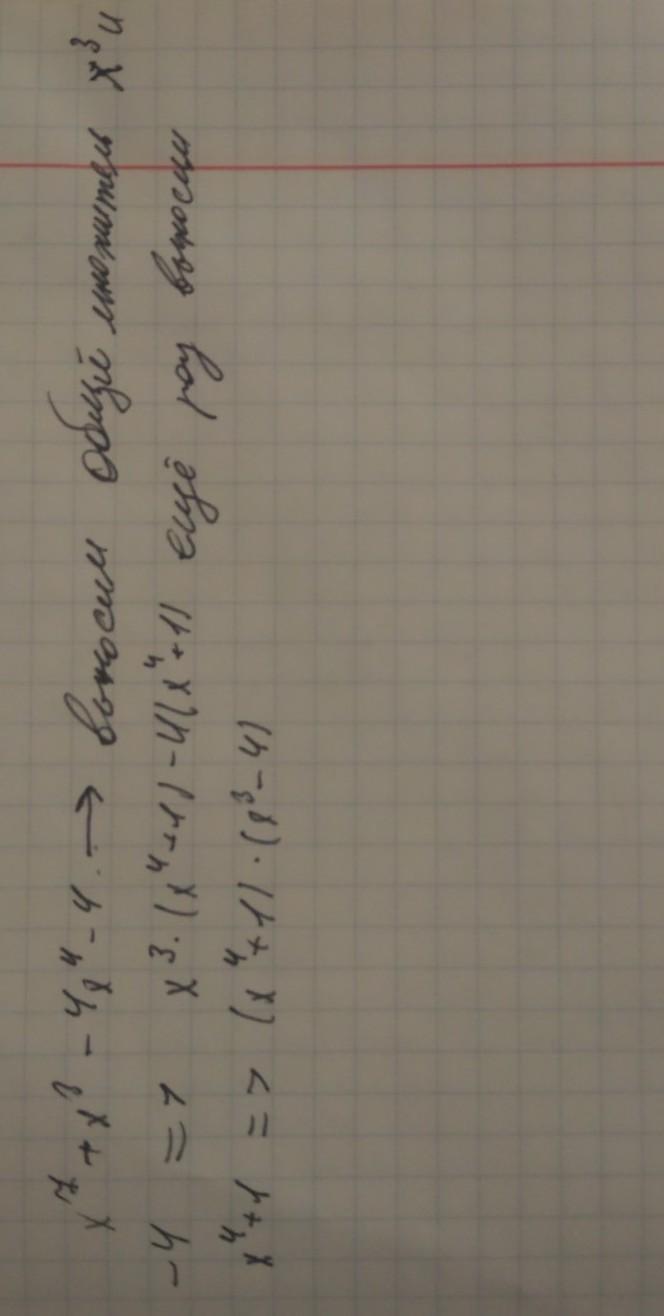 x⁷ + x³ - 4x⁴ - 4 → выносим общий множитель x³ и
-4 => x³·(x⁴+1) - 4(x⁴+1) ещё раз выносим
x⁴+1 => (x⁴+1)·(x³-4)